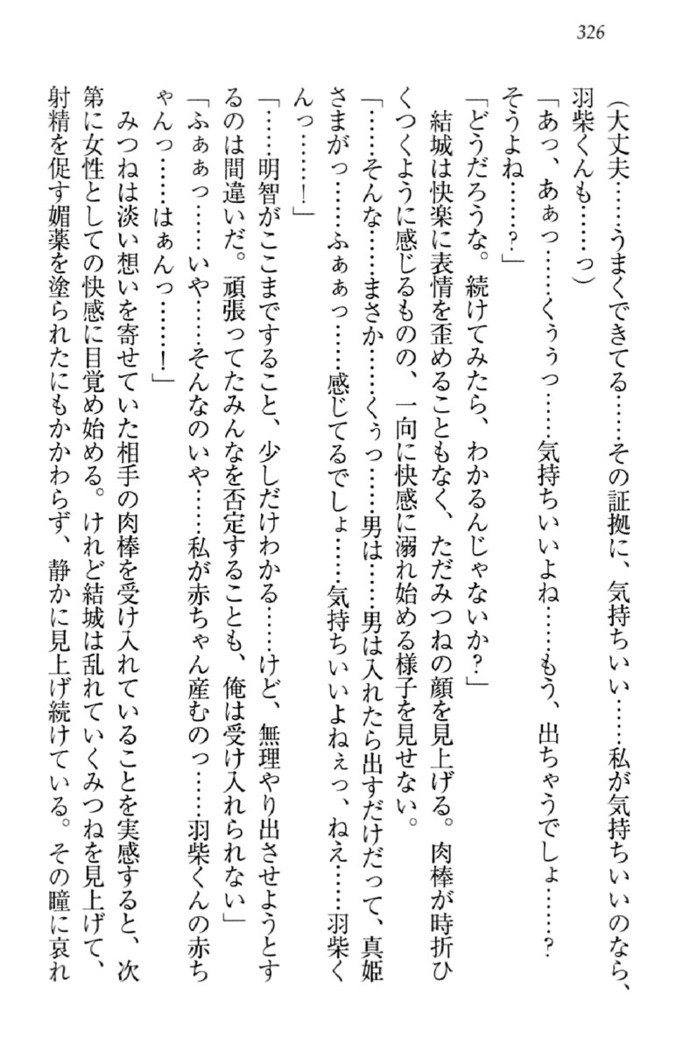 326
(大丈夫……うまくできてる……その証拠に、気持ちいい……私が気持ちいいのなら、
羽柴くんも……っ)
「あっ、あぁっ……くぅぅっ……気持ちいいよね……もう、出ちゃうでしょ……?
そうよね……?」
「どうだろうな。続けてみたら、わかるんじゃないか?」
結城は快楽に表情を歪めることもなく、ただみつねの顔を見上げる。肉棒が時折ひ
くつくように感じるものの、一向に快感に溺れ始める様子を見せない。
「……そんな……まさか……くぅっ……男は……男は入れたら出すだけだって、真姫
さまがっ……ふぁぁっ……感じてるでしょ……気持ちいいよねぇっ、ねえ……羽柴く
んっ……!」
「……明智がここまですること、少しだけわかる……けど、無理やり出させようとす
るのは間違いだ。頑張ってたみんなを否定することも、俺は受け入れられない」
「ふぁぁっ……いや……そんなのいや……私が赤ちゃん産むのっ……羽柴くんの赤ち
ゃんっ……はぁんっ……!」
みつねは淡い想いを寄せていた相手の肉棒を受け入れていることを実感すると、次
第に女性としての快感に目覚め始める。けれど結城は乱れていくみつねを見上げて、
射精を促す媚薬を塗られたにもかかわらず、静かに見上げ続けている。その瞳に哀れ